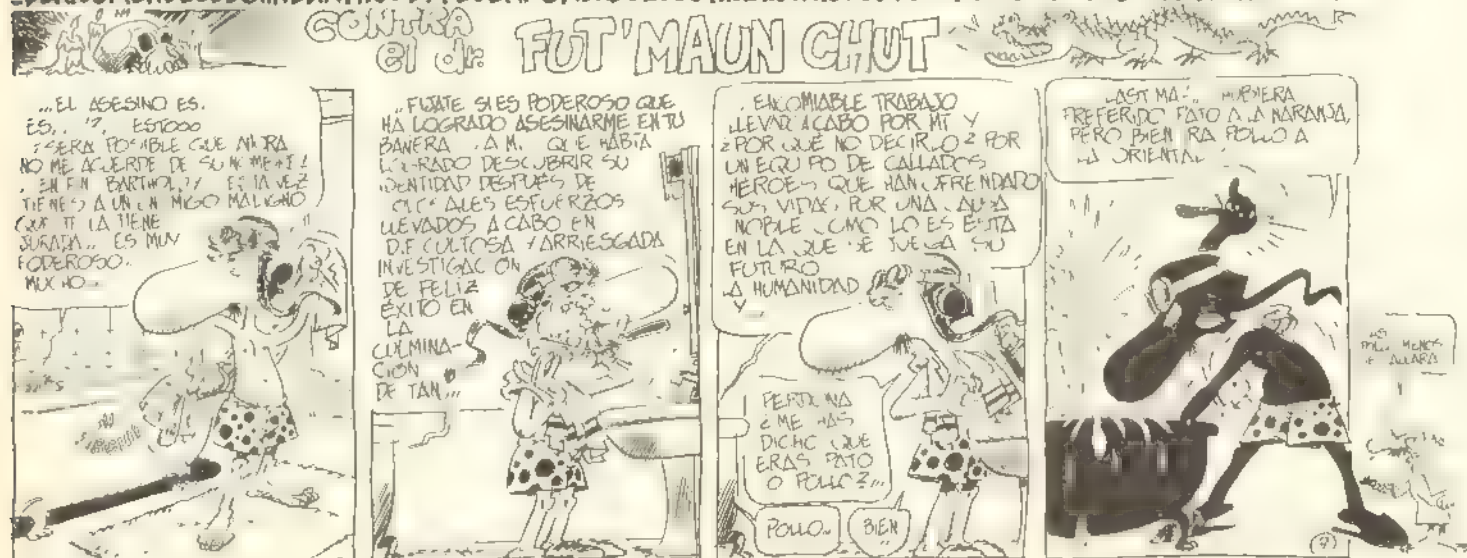 CONTRA
el dr. FUT'MAUN CHUT
...EL ASESINO ES.
ES... ESTOOO
¿SERÁ POSIBLE QUE AHORA
NO ME ACUERDE DE SU NOMBRE?
EN FIN BARTHOLDY ESTA VEZ
TIENES A UN ENEMIGO MALIGNO
QUE TE LA TIENE
JURADA... ES MUY
PODEROSO.
MUCHO...
...FIJATE SI ES PODEROSO QUE
HA LOGRADO ASESINARME EN TU
BAÑERA. A MI QUE HABÍA
LOGRADO DESCUBRIR SU
IDENTIDAD DESPUÉS DE
ESFUERZOS
LLEVADOS A CABO EN
DIFICULTOSA Y ARRIESGADA
INVESTIGACION
DE FELIZ
ÉXITO EN
LA
CULMINA-
CION
DE TAN...
. ENCOMIABLE TRABAJO
LLEVADO A CABO POR MÍ Y
¿POR QUÉ NO DECIRLO? POR
UN EQUIPO DE CALLADOS
HÉROES QUE HAN OFRENDADO
SUS VIDAS POR UNA CAUSA
NOBLE COMO LO ES ESTA
EN LA QUE SE JUEGA SU
FUTURO
LA HUMANIDAD
Y...
PERDONA
¿ME HAS
DICHO QUE
ERAS PATO
O POLLO?...
POLLO..
BIEN
LASTIMA... HUBIERA
PREFERIDO PATO A LA NARANJA,
PERO BIEN POLLO A
LA ORIENTAL
POLLO MENOS